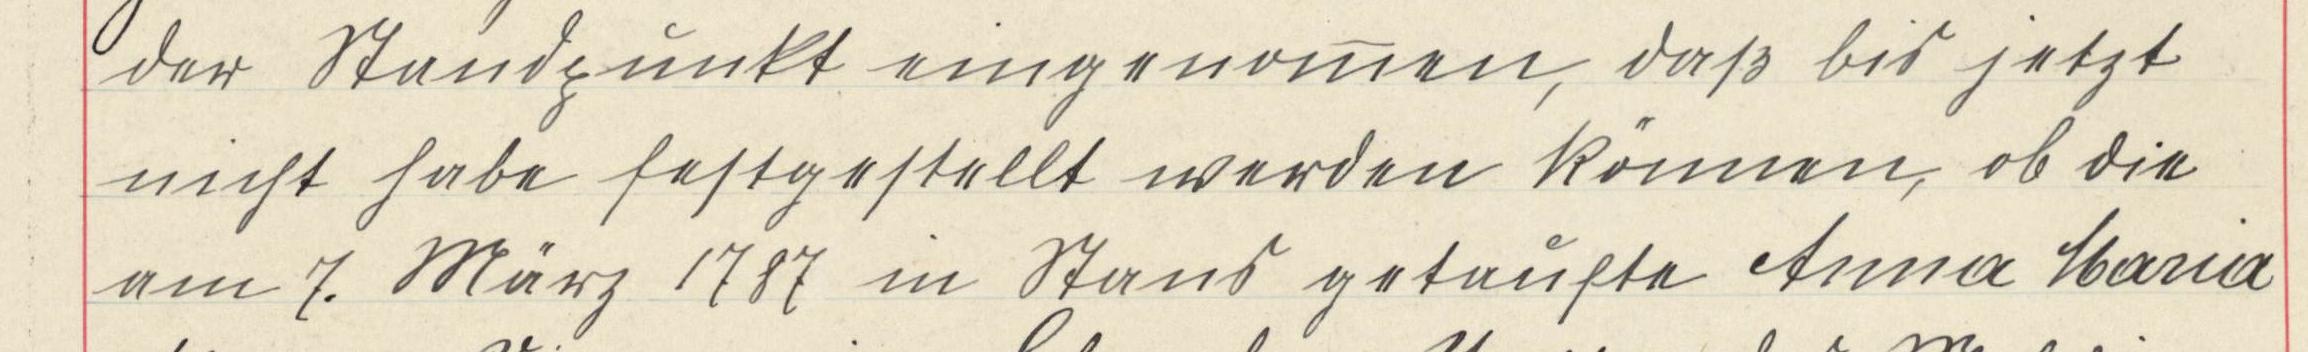 der Standpunkt eingenom̅en, daß bis jetzt
nicht habe festgestellt werden können, ob die
am 7. März 1787 in Stans getaufte Anna Maria